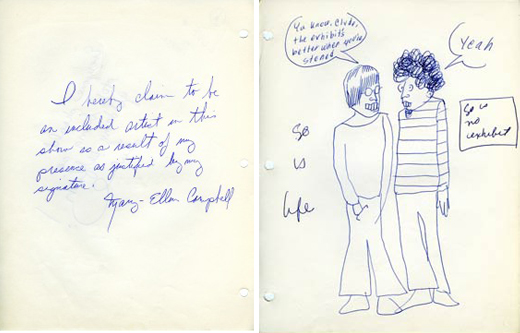 I hereby claim to be
an included artist in this
show as a result of my
presence as justified by my
signature.
Mary-Ellen Campbell
Ya know, Clyde,
the exhibit's
better when you're
stoned
Yeah
So
is
life
So is
no
exhibit